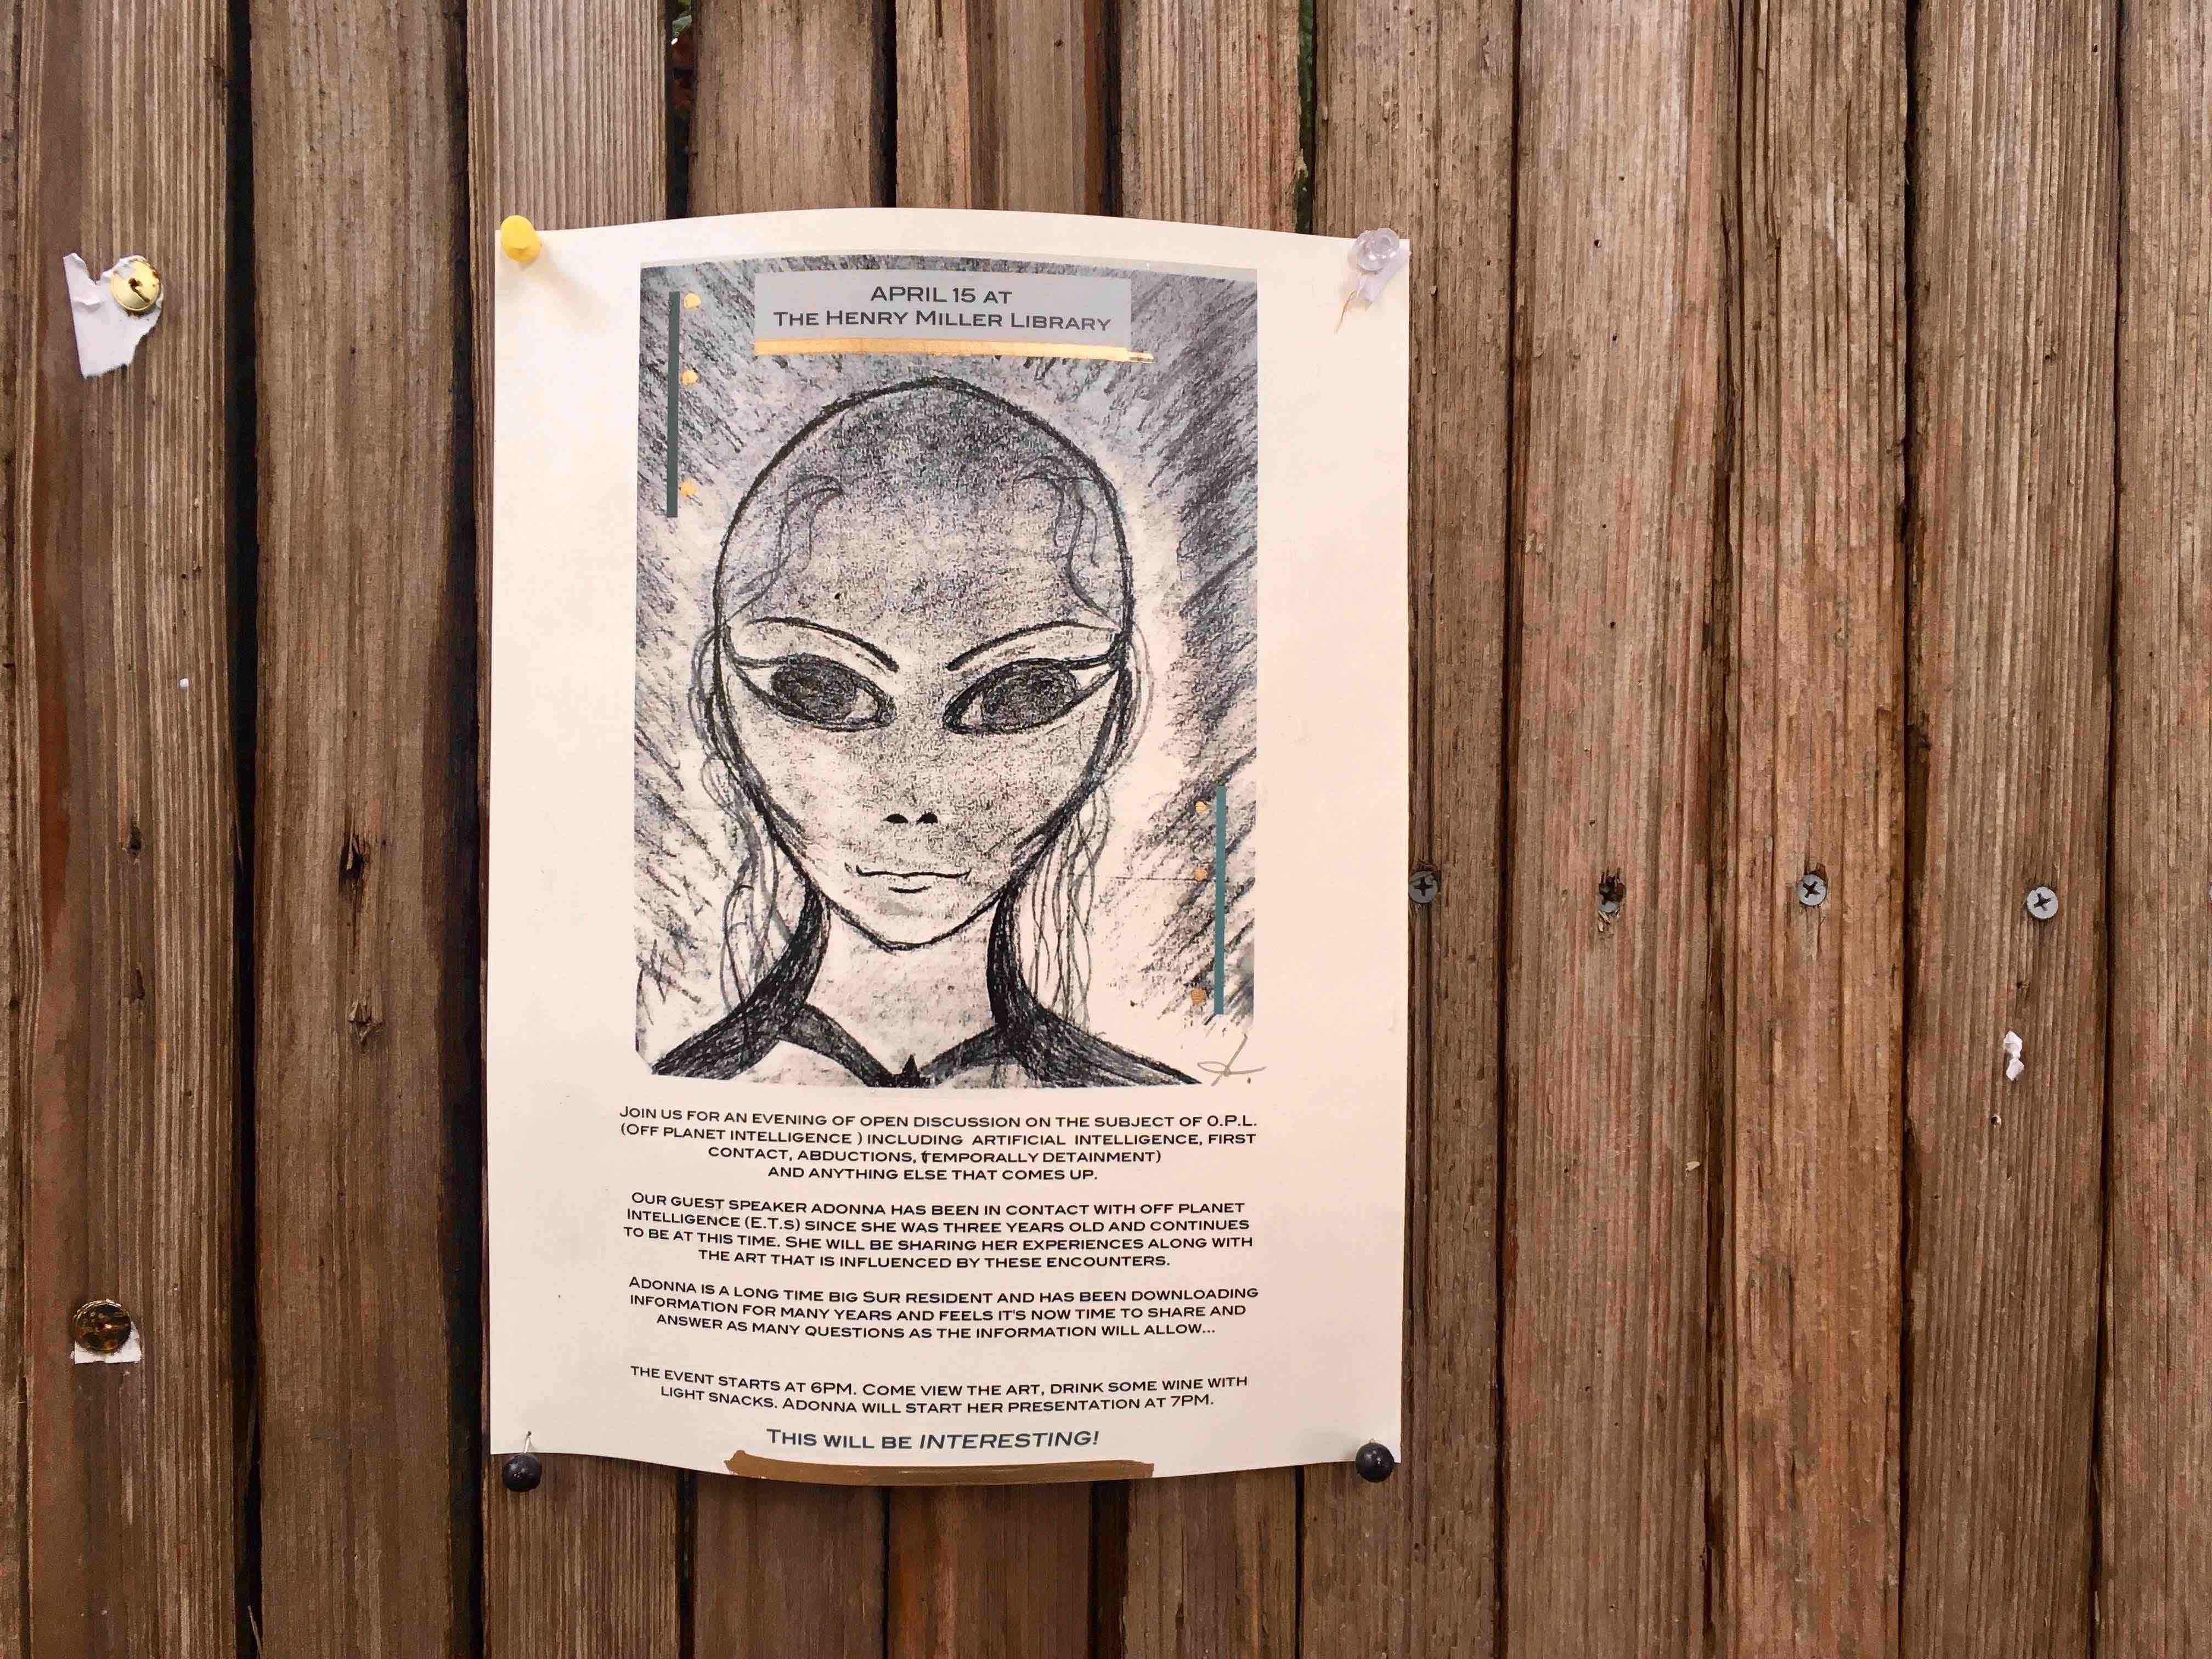 APRIL 15 AT
THE HENRY MILLER LIBRARY
JOIN US FOR AN EVENING OF OPEN DISCUSSION ON THE SUBJECT OF O.P.L.
(OFF PLANET INTELLIGENCE ) INCLUDING ARTIFICIAL INTELLIGENCE, FIRST
CONTACT, ABDUCTIONS, (TEMPORALLY DETAINMENT)
AND ANYTHING ELSE THAT COMES UP.
OUR GUEST SPEAKER ADONNA HAS BEEN IN CONTACT WITH OFF PLANET
INTELLIGENCE (E.T.S) SINCE SHE WAS THREE YEARS OLD AND CONTINUES
TO BE AT THIS TIME. SHE WILL BE SHARING HER EXPERIENCES ALONG WITH
THE ART THAT IS INFLUENCED BY THESE ENCOUNTERS.
ADONNA IS A LONG TIME BIG SUR RESIDENT AND HAS BEEN DOWNLOADING
INFORMATION FOR MANY YEARS AND FEELS IT'S NOW TIME TO SHARE AND
ANSWER AS MANY QUESTIONS AS THE INFORMATION WILL ALLOW...
THE EVENT STARTS AT 6PM. COME VIEW THE ART, DRINK SOME WINE WITH
LIGHT SNACKS. ADONNA WILL START HER PRESENTATION AT 7PM.
THIS WILL BE INTERESTING!